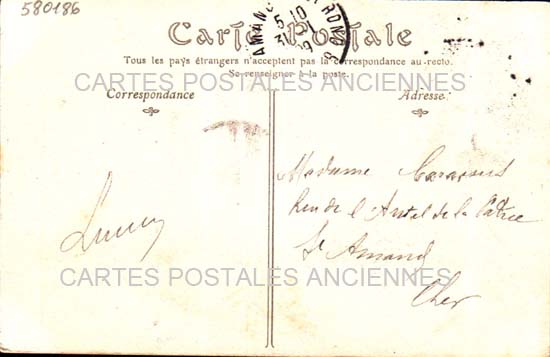 580186
Carte Postale
Tous les pays étrangers n'acceptent pas la correspondance au-recto.
Se renseigner à la poste.
CARTES POSTALES ANCIENNES
Correspondance
Adresse
Madame
Rue de l'Autel de la Patrie
St Amand
Cher
CARTES POSTALES ANCIENNES